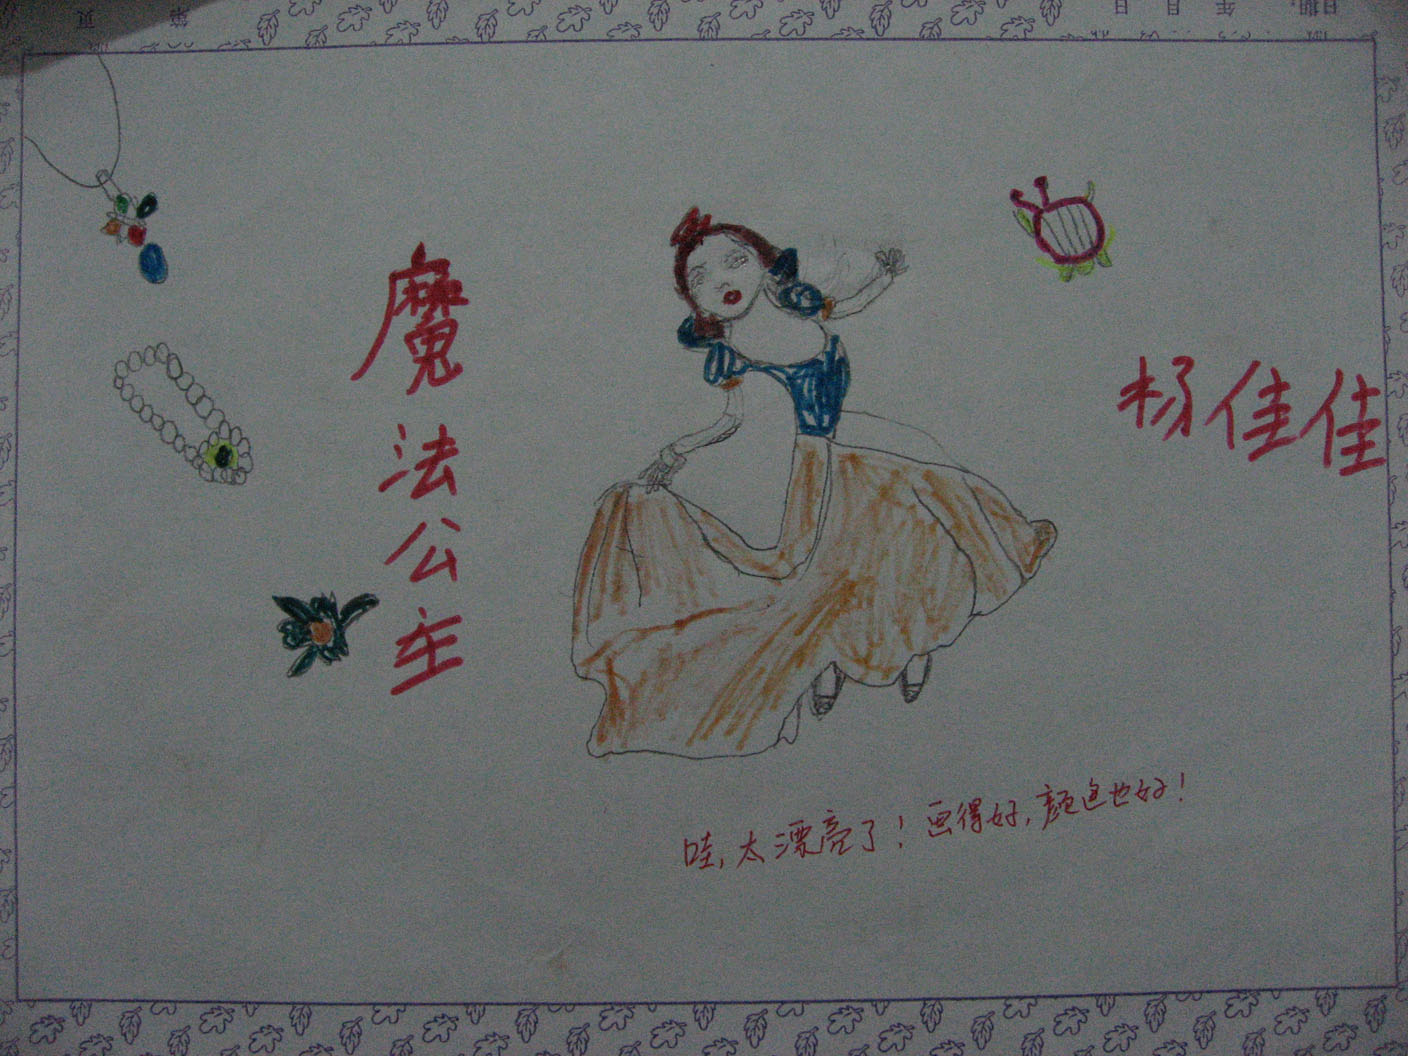 魔法公主
杨佳佳
哇,太漂亮了!画得好,颜色也好!